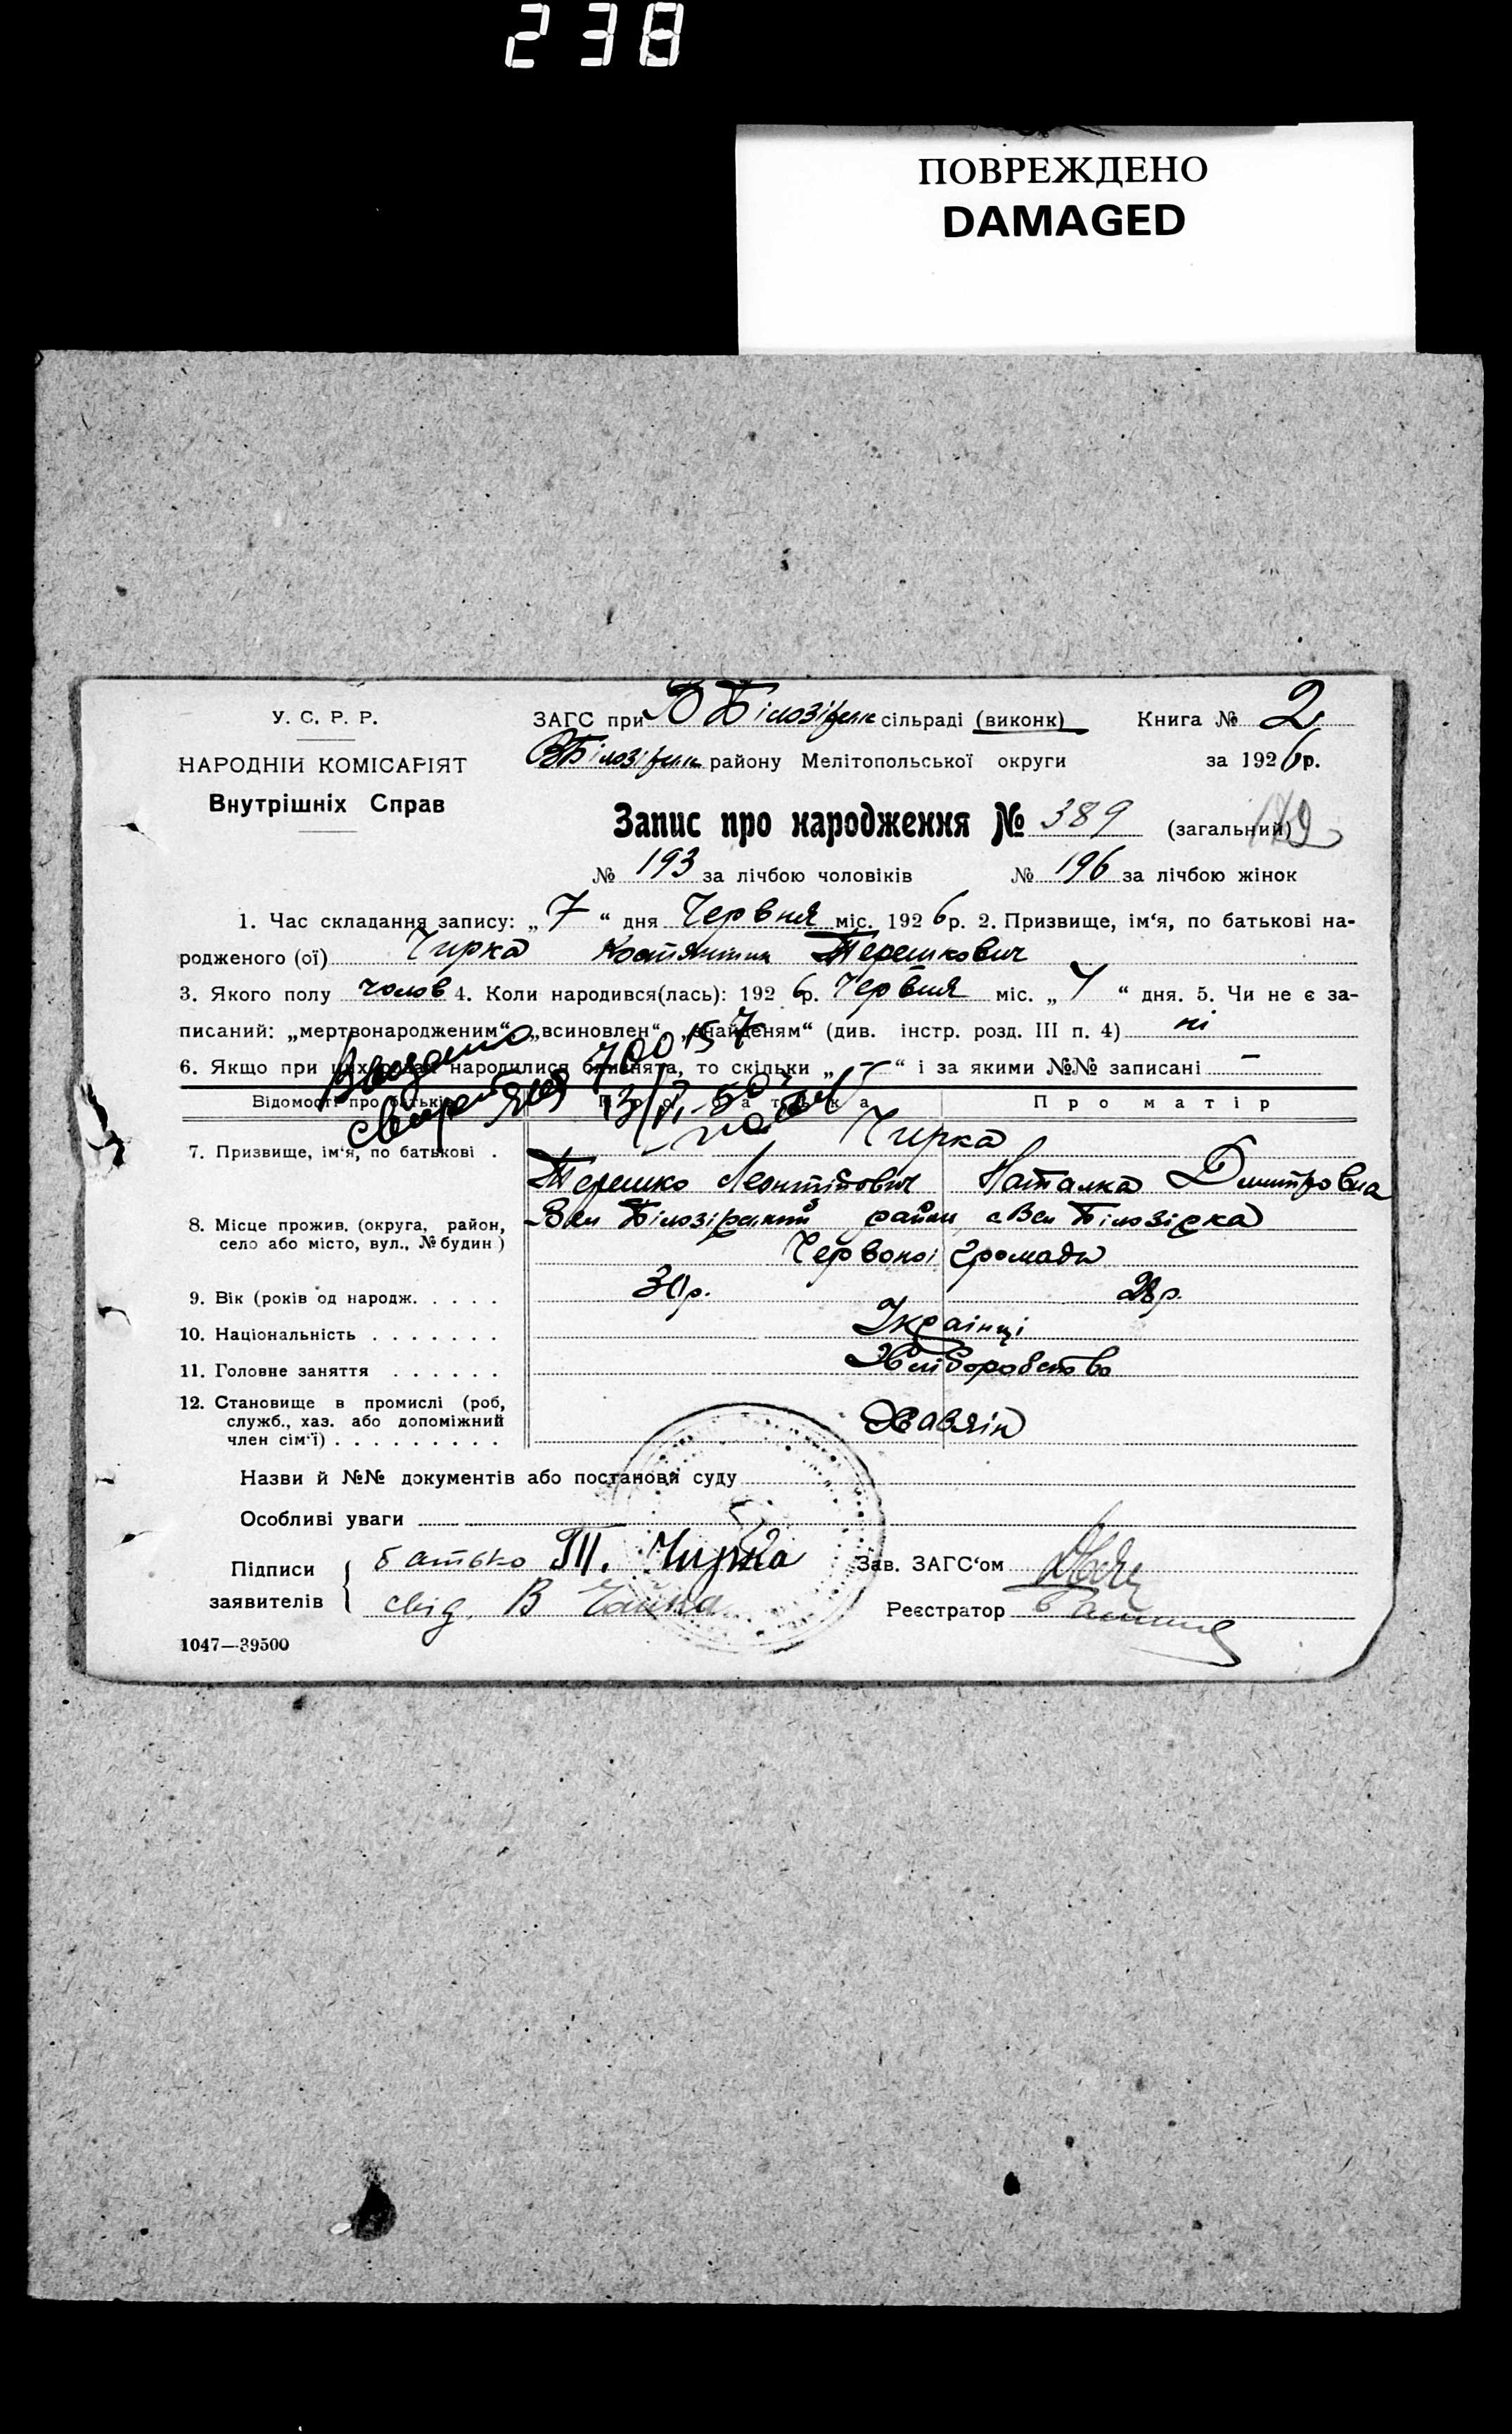 238
ПОВРЕЖДЕНО
DAMAGED
У. С. Р. Р.
НАРОДНІЙ КОМІСАРІЯТ
Внутрішніх Справ
ЗАГС при В Білозірськ сільраді (виконк)
ВБілозірськ району Мелітопольської округи
Книга № 2
за 1926 р.
Запис про народження № 389 (загальний)
№ 193 за лічбою чоловіків № 196 за лічбою жінок
1. Час складання запису: „ 7 “ дня Червня міс. 1926 р. 2. Призвище, ім‘я, по батькові на-
родженого (ої) Чирка Костянтин Терешкович
3. Якого полу чолов 4. Коли народився(лась): 1926 р. Червня міс. „ “ дня. 5. Чи не є за-
писаний: „мертвонародженим“ „всиновлен“ „знайденям“ (див. інстр. розд. III п. 4) ні
6. Якщо при цих родах народилися близнята, то скільки „ – “ і за якими №№ записані –
Відомості про батьків Про батька Про матір
7. Призвище, ім‘я, по батькові . Чирка
Терешко Леонтійович Наталка Дмитровна
8. Місце прожив. (округа, район,
село або місто, вул., № будин)
Вел Білозірський район с Вел Білозірка
Червоної Громади
9. Вік (років од народж. . . . . 30р. 28р.
10. Національність . . . . . . . Українці
11. Головне заняття . . . . . . Хліборобство
12. Становище в промислі (роб,
служб., хаз. або допоміжний
член сім‘ї) . . . . . . . . . Хазяїн
Назви й №№ документів або постанови суду
Особливі уваги
Підписи
заявителів
батько Т. Чирка
свід. В
Зав. ЗАГС‘ом
Реєстратор
1047—39500